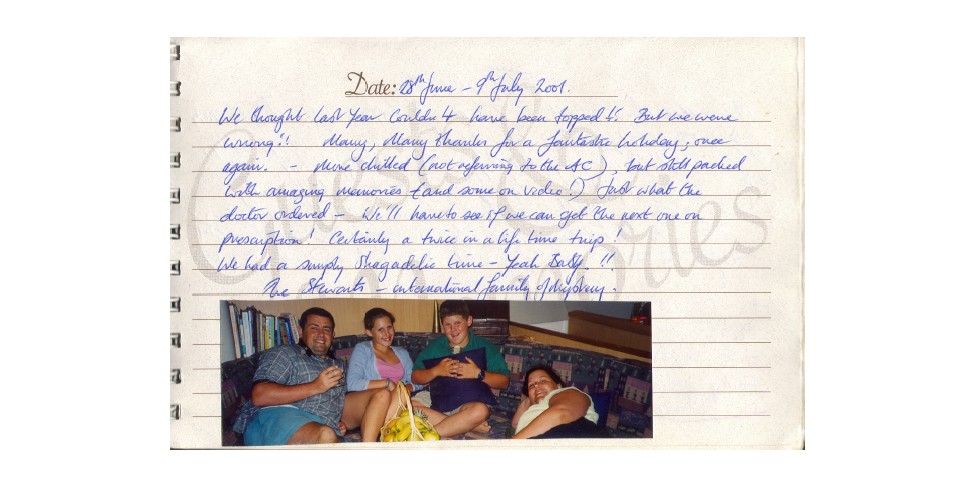 Date: 28th June - 9th July 2001.
We thought last year couldn't have been topped! But we were
wrong!! Many, Many thanks for a fantastic holiday, once
again. - More chilled (not referring to the AC), but still packed
with amazing memories (and some on video!) Just what the
doctor ordered - We'll have to see if we can get the next one on
prescription! Certainly a twice in a life time trip!
We had a simply Shagadelic time - Yeah Baby!!!
The Stewarts - international family of mystery.
Guest
Memories